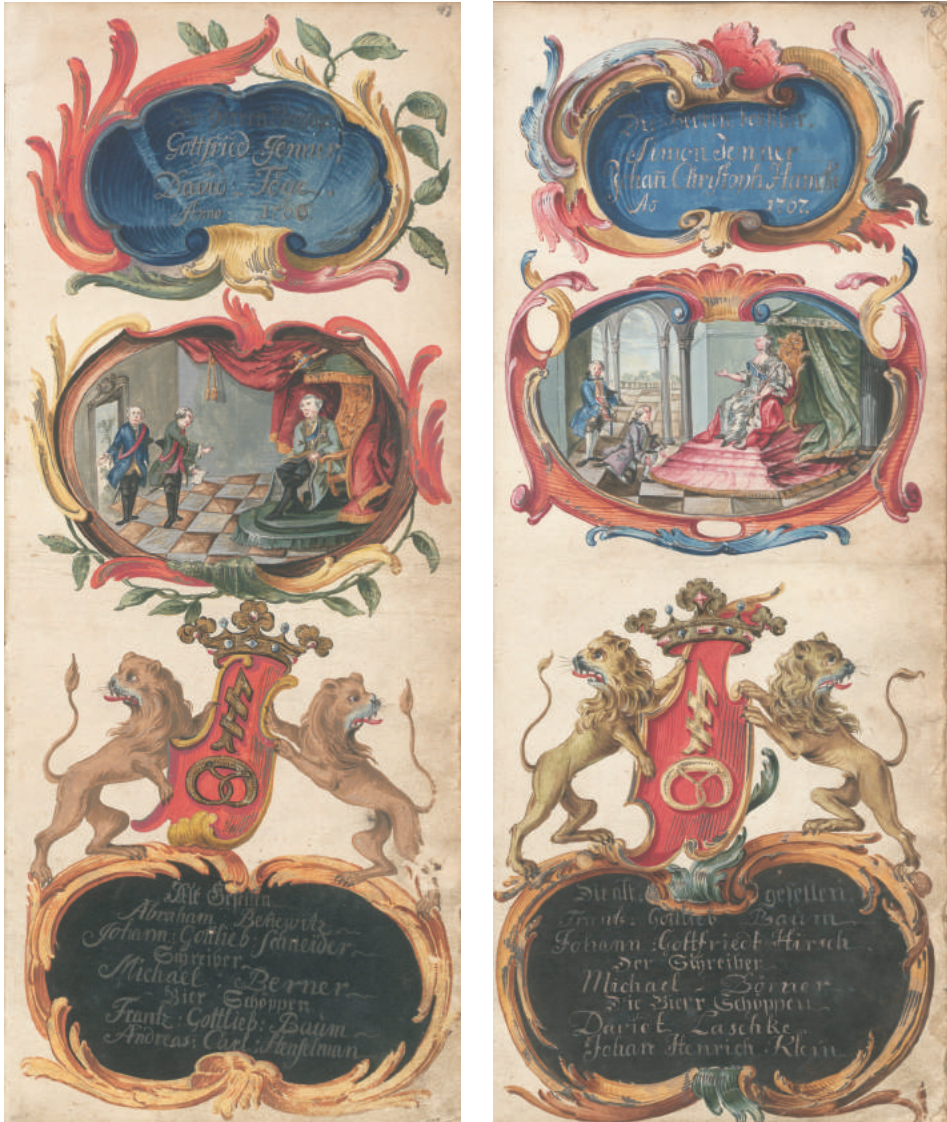 43
Gottfried Jenner,
David
Anno 1766.
Alt Gesellen
Abraham: Benewitz
Johann: Gottlieb: Schneider
Schreiber
Michael: Berner
Bier Schöppen
Frantz: Gottlieb: Baum
Andreas: Carl:
46
Simon Jenner
Johañ Christoph
Ao 1767.
Die alt gesellen.
Frantz Gottlieb Baum
Johann: Gottfriedt Hirsch
Der Schreiber
Michael Börner
Die Bierr Schöppen
Laschke
Johan Henrich Klein